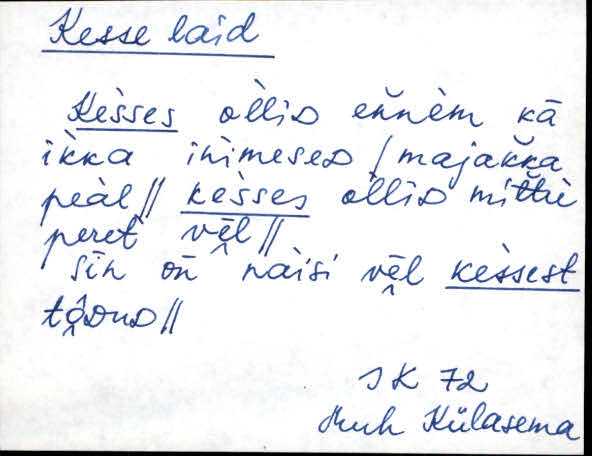 Kesse laid
Kèsses òllid eňnèm kā
ikka inimesed / majakka
peàl // kèsses òllid mittu
peret vēl //
sīn oń nàisi vēl kèssest
tōdud //
JK 72
Muh Külasema